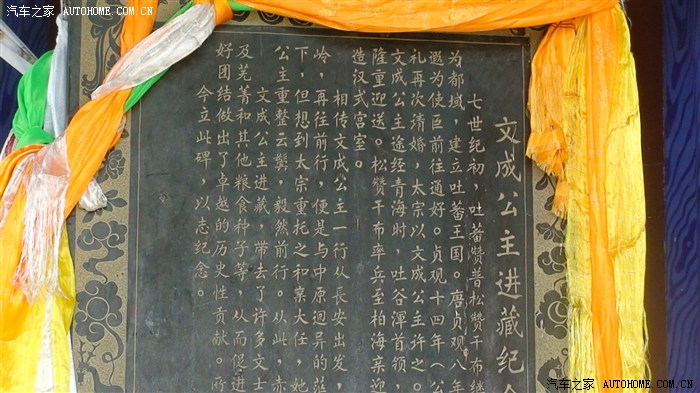 汽车之家 AUTOHOME.COM.CN
文成公主进藏纪念
七世纪初，吐蕃赞普松赞干布继
为都域，建立吐蕃王国。唐贞观八年
遐为使臣前往通好。贞观十四年（公
礼再次请婚，太宗以文成公主许之。
文成公主途经青海时，吐谷浑首领，
隆重迎送。松赞干布率兵至柏海亲迎
造汉式宫室。
相传文成公主一行从长安出发，
岭，再往前行，便是与中原迥异的
下，但想到太宗重托之和蕃大任，她
公主重整云鬓，毅然前行。从此，赤
文成公主进藏，带去了许多文士
及芜菁和其他粮食种子等，从而促进
好团结做出了卓越的历史性贡献。
今立此碑，以志纪念。
汽车之家 AUTOHOME.COM.CN